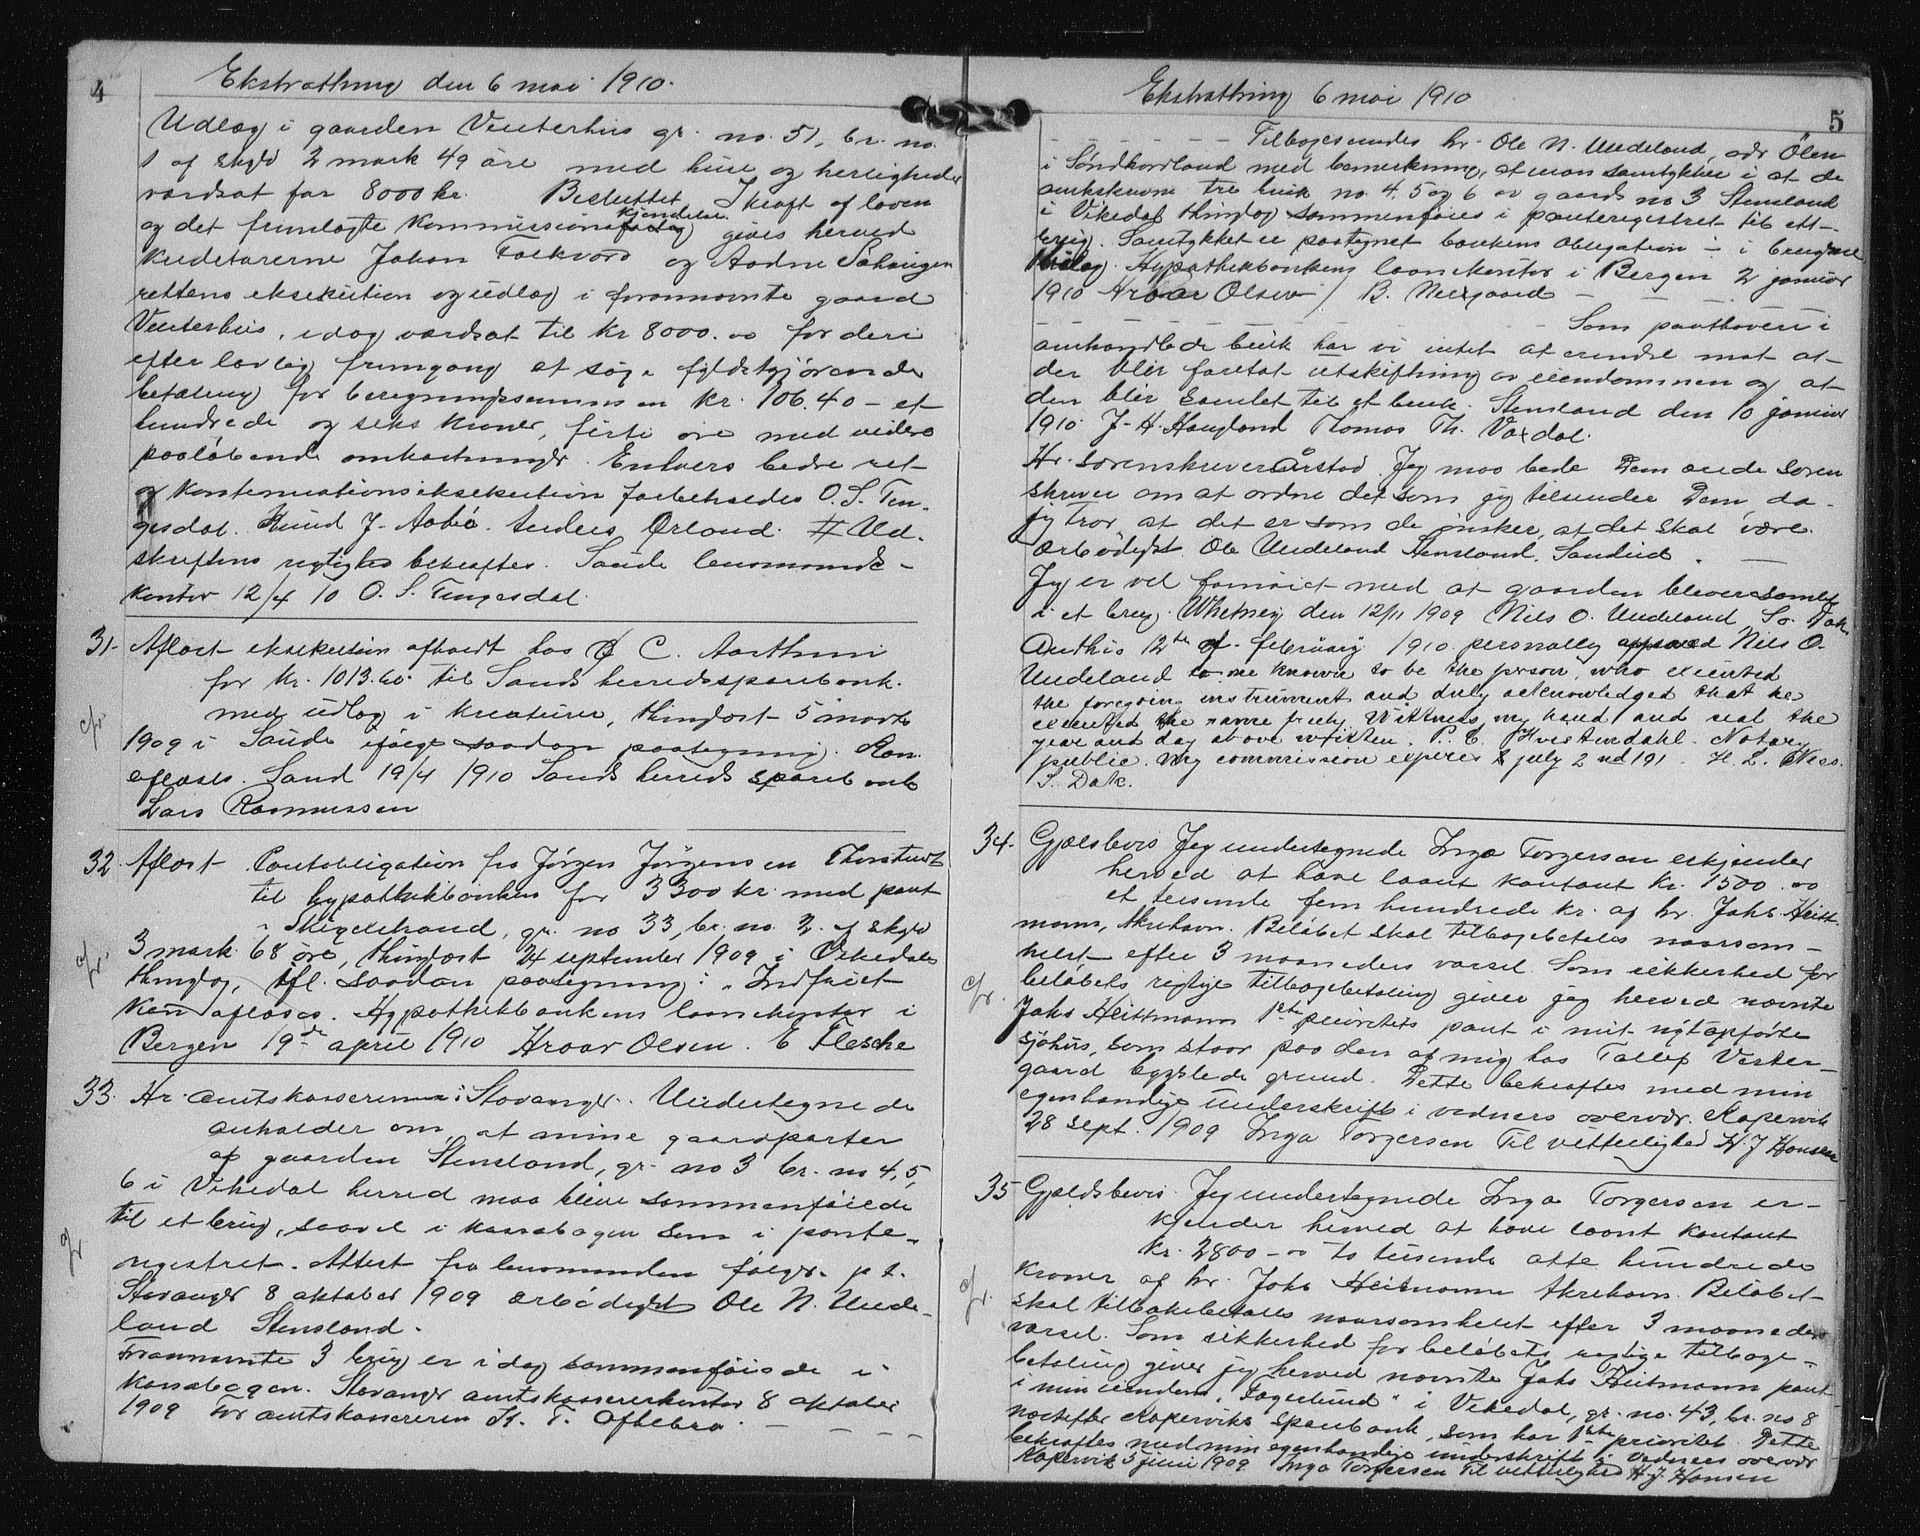 4
Ekstrathing den 6 mai 1910.
Udlæg i gaarden Vinterhus gr. no. 51, br. no.
1 af skyld 2 mark 49 øre med huse og herligheder
værdsat for 8000 kr. Besluttet I kraft af loven
og det fremlagte kommissions kjendelse gives herved
kreditorerne Jakon Folkvord og Aadne
rettens eksekution og udlæg i forannævnte gaard
Vinterhus, idag værdsat til kr 8000.00 for deri
efter lovlig fremgang at søge fyldestgjørende
betaling for beregningssummen kr. 106.40 – et
hundrede og seks kroner, firti øre med videre
paaløbende omkostninger. Enhvers bedre ret
og kontinuationseksekution forbeholdes O. S. Tengesdal.
gesdal. Knud J. Aabø. Anders Ørland. # Ud-
skriftens rigtighed bekræftes. Saude lensmands-
kontor 12/4 10 O. S. Tengesdal.
31. Aflæst eksekution afholdt hos C. Aarthun
for kr. 1013.60 til Sands herredssparebank.
med udlæg i kreaturer, thinglæst 5 marts
cfr.
1909 i Saude ifølge saadan paategning. Kan
aflæses. Sand 19/4 1910 Sands herreds sparebank
Lars Rasmussen
32. Aflæst Pantobligation fra Jørgen Jørgensen
til hypothekbanken for 3300 kr. med pant
i Skigelstrand, gr. no 33, br. no. 2. af skyld
cfr.
3 mark 68 øre, thinglæst 24 september 1909 i Vikedals
thinglag, ifl. saadan paategning: "Indfriet
Kan aflæses. Hypothekbankens laanekontor i
Bergen 19de april 1910 Hroar Olsen. E Flesche
33. Hr. amtskassereren i Stavanger. Undertegnede
anholder om, at mine gaardparter
af gaarden Stensland, gr. no 3 br. no 4,5,
6 i Vikedal herred maa blive sammenføiede
til et brug, saavel i kassabogen som i pante-
cfr
registret. Attest fra lensmanden følger. p t.
Stavanger 8 oktober 1909 ærbødigst Ole N. Unde-
land Stensland.
Forannævnte 3 brug er i dag sammenføiede i
kassabogen. Stavanger amtskassererkontor 8 oktober
1909 for amtskassereren K. T. Oftebro. – – –
Ekstrathing 6 mai 1910
5
– – – – – – Tilbagesendes hr. Ole N. Undeland, adr Ölen
i Søndhordland med bemerkning, at man samtykker i at de
omskrevne tre bruk no. 4, 5 og 6 av gaards no 3 Stensland
i Vikedal thinglag sammenføies i panteregistret til ett
brug. Samtykket er paategnet bankens obligation i
Hypothekbankens laanekontor i Bergen 2 januar
1910 Hroar Olsen / B. Neergaard – – – –
– – – – – – Som panthaver i
omhandlede bruk har vi intet at erindre mot at
der blir foretat utskiftning av eiendommen og at
den blir samlet til et bruk. Stensland den 10 januar
1910. J. H. Haugland Tomas Th. Vaxdal.
Hr. sorenskriver Aarstad. Jeg maa bede Dem ande soren
skriver om at ordne det som jeg tilsender Dem, da
jeg tror at det er som de ønsker, at det skal være
Ærbødigst Ole Undeland Stensland, Sandeid.
Jeg er vel fornøiet med at gaarden bliver samlet
i et brug. Whetney den 12/11 1909 Nils O. Undeland, So. Dak.
On this 12th of februariy 1910 personally appeared Nels O.
Undeland to me known to be the person, who executed
the foregoing instrument and duly acknowledged that he
executed the same freely Wittness my hand and seal the
year and day above written. P. E. Hvistendahl. Notary
public. My commission experes July 2nd 191 . H. L. Ness.
S. Dak.
34. Gjælsbevis Jeg undertegnede Inga Torgersen erkjender
herved at have laant kontant kr. 1500.00
et tusende fem hundrede kr. af hr. Johs. Heitt-
mann, Akrehavn. Beløbet skal tilbagebetales naarsom-
helst efter 3 maaneders varsel. Som sikkerhed for
cfr.
beløbets rigtige tilbagebetaling giver jeg herved nævnte
Johs Heittmann 1ste prioritets pant i mit nytopførte
sjøhus, som staar paa den af mig hos Tollef Vester-
gaard bygslede grund. Dette bekræftes med min
egenhændige underskrift i vedners overvær. Kopervik
28 sept. 1909 Inga Torgersen Til vitterlighed H. J Hansen
35 Gjældsbevis. Jeg undertegnede Inga Torgersen er-
kjender herved at have laant kontant
kr. 2800.00 to tusende otte hundrede
cfr.
kroner af hr. Johs Heitmann Akrehavn. Beløbet
skal tilbakebetales naarsomhelst efter 3 maaneders
varsel. Som sikkerhed for beløbets rigtige tilbage-
betaling giver jeg herved nævnte Johs Heitmann pant
i min eiendom "Fagerlund" i Vikedal, gr. no. 43, br. no 8
næstefter Kopervik sparebank, som har 1ste prioritet. Dette
bekræftes med min egenhændige underskrift i vedners overvær
Kopervik 5 juni 1909 Inga Torgersen Til vitterlighed H J Hansen